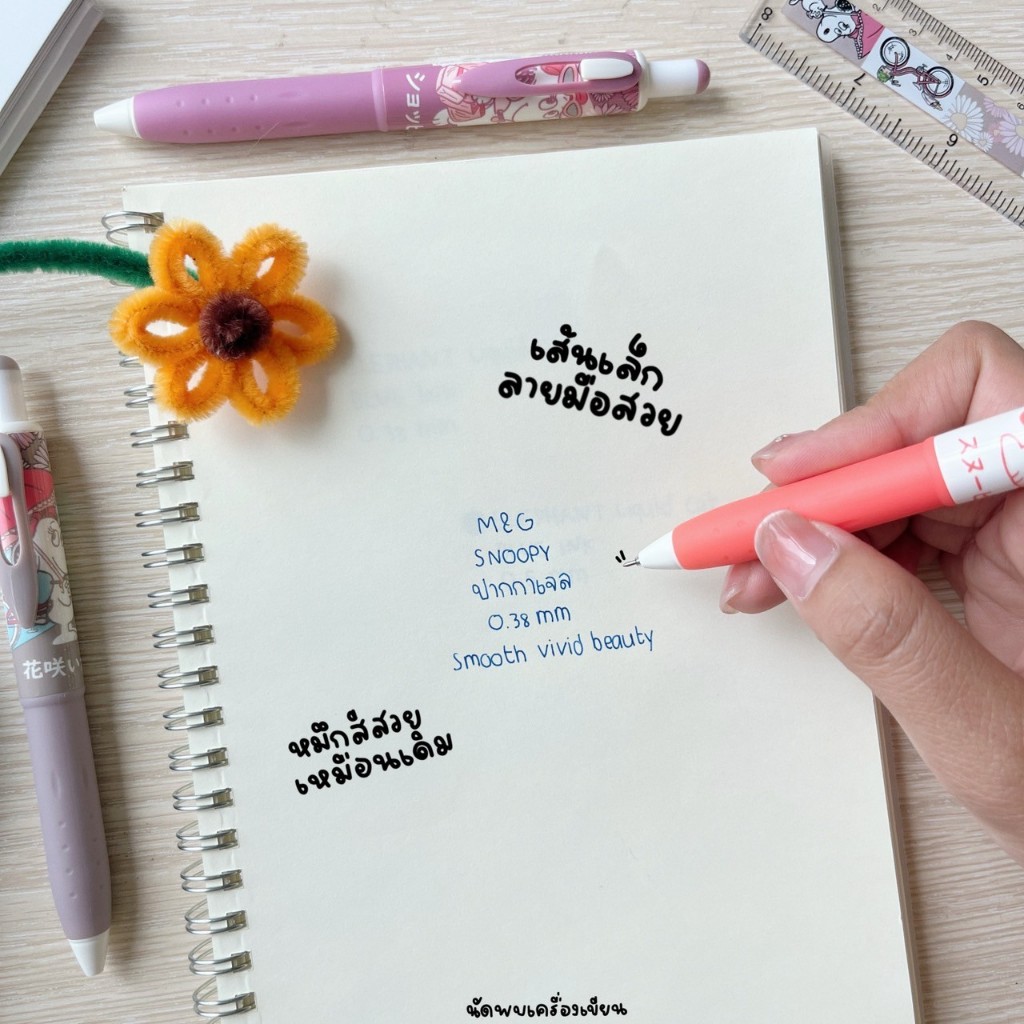 スヌ
เส้นเล็ก
ลายมือสวย
スヌー
M&G
SNOOPY
ปากกาเจล
0.38 mm
smooth vivid beauty
花咲い
หมึกสีสวย
เหมือนเดิม
นัดพบเครื่องเขียน
8
7
6
3
4
5
6